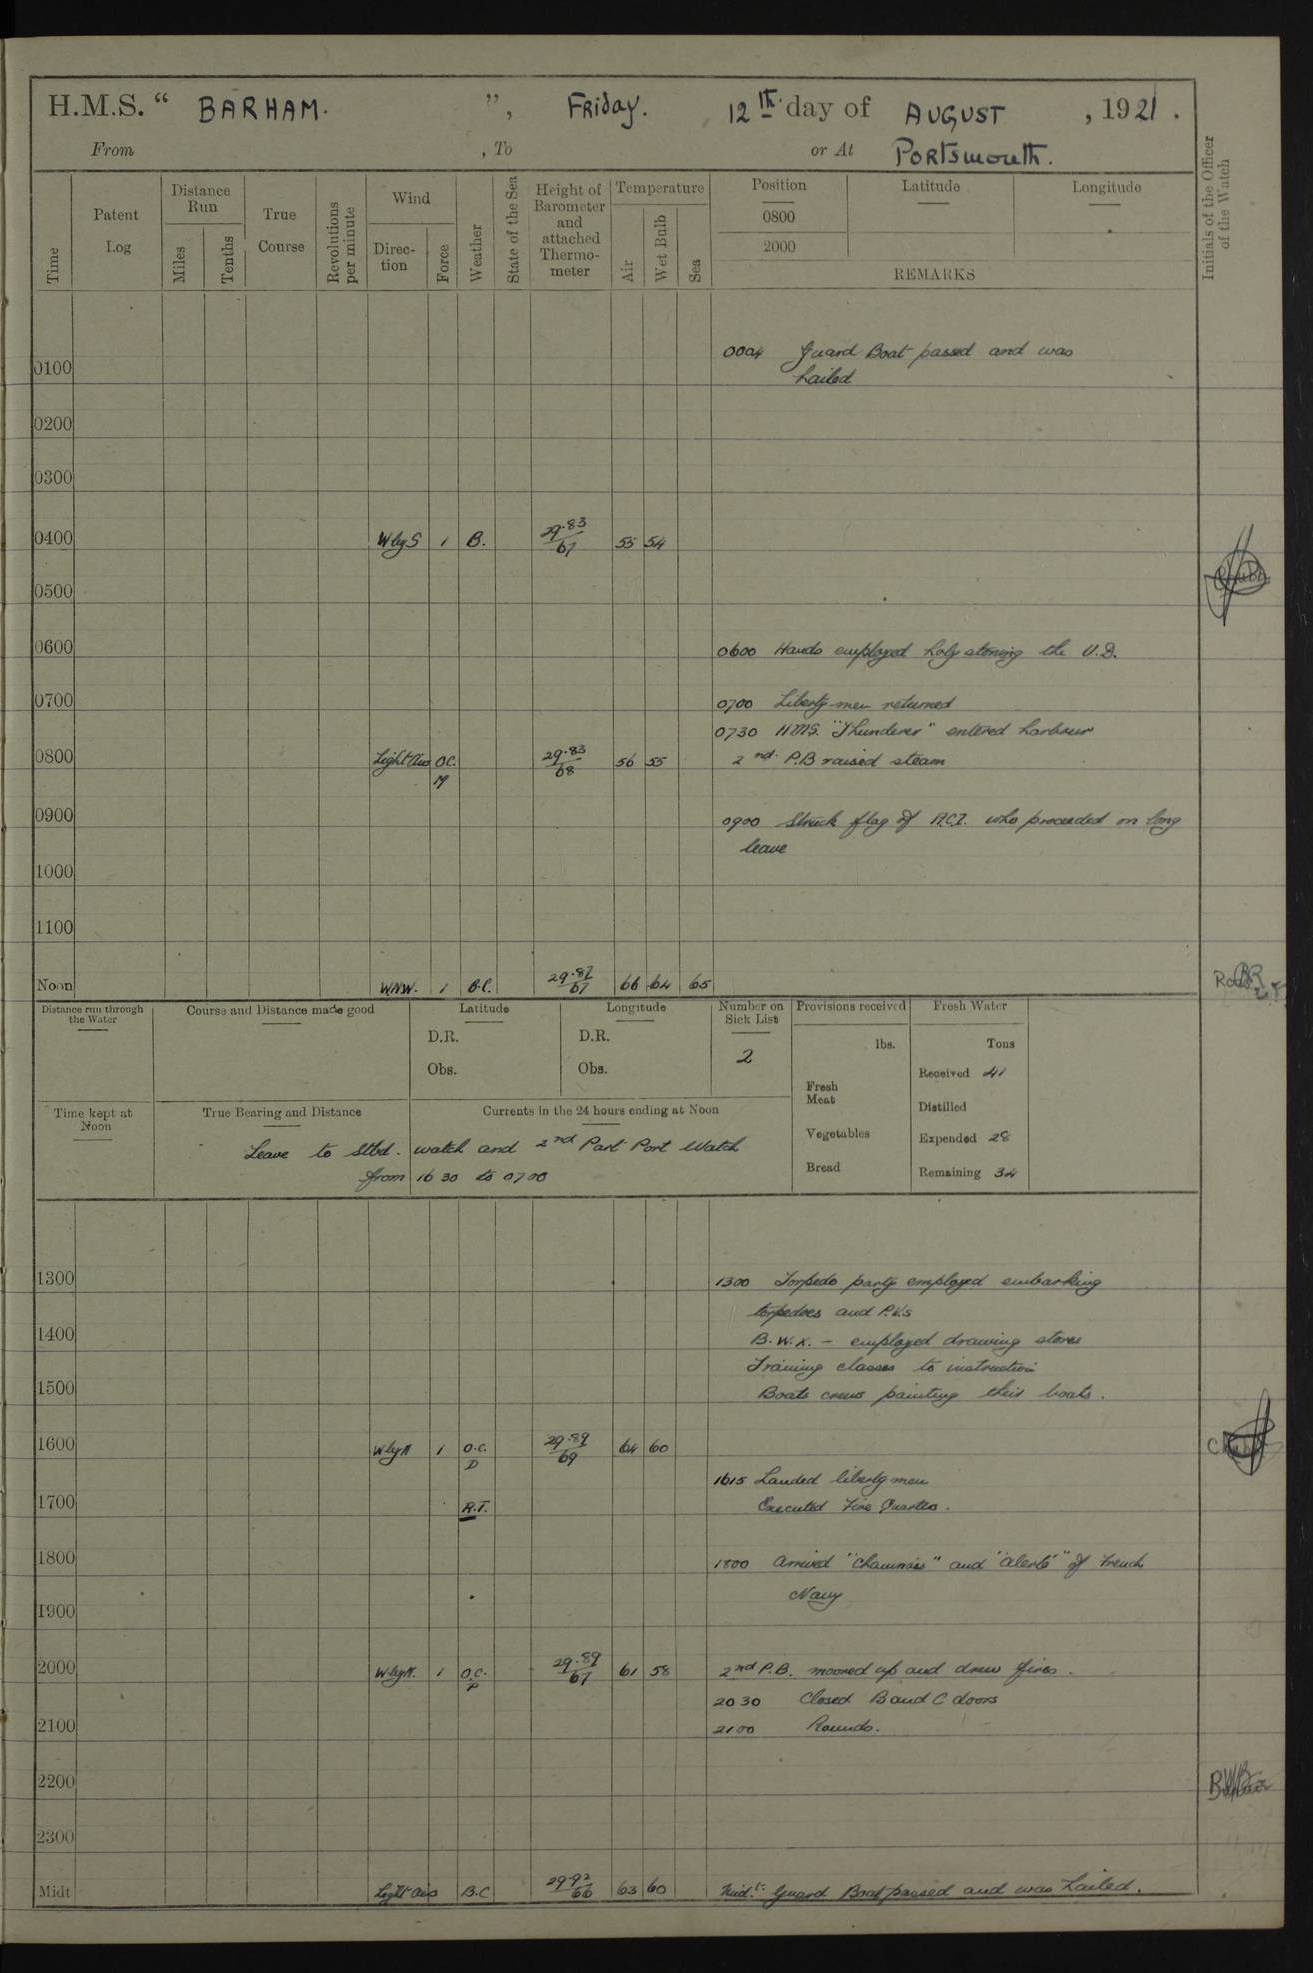 H.M.S. “ BARHAM. ”, Friday. 12th day of AUGUST , 1921 .
From , To or At Portsmouth.
Time Patent Log Distance Run Miles Tenths True Course Revolutions per minute Wind Direc- tion Force Weather State of the Sea Height of Barometer and attached Thermo- meter Temperature Air Wet Bulb Sea Position 0800 2000 Latitude Longitude Initials of the Officer of the Watch
REMARKS
0004 Guard Boat passed and was
0100 hailed
0200
0300
0400 W by S 1 B. 29.83/67 55 54
0500
0600 0600 Hands employed holy stoning the U.D.
0700 0700 Liberty men returned
0730 H.M.S. "Thunderer" entered harbour
0800 Light Airs O.C. M 29.83/68 56 55 2nd P.B raised steam
0900 0900 Struck flag of A.C.I. who proceeded on long
leave
1000
1100
Noon WNW. 1 B.C. 29.87/67 66 64 65
Distance run through the Water Course and Distance made good Latitude Longitude Number on Sick List Provisions received Fresh Water
D.R. D.R. 2 lbs. Tons
Obs. Obs. Fresh Meat Received 41
Distilled
Time kept at Noon True Bearing and Distance Currents in the 24 hours ending at Noon Vegetables Expended 28
Leave to Stbd. watch and 2nd Part Port Watch Bread Remaining 34
from 16 30 to 0700
1300 1300 Torpedo party employed embarking
torpedoes and P.V.s
1400 B.W.K. – employed drawing stores
Training classes to instruction
1500 Boats crews painting their boats.
1600 W by N 1 O.C. D 29.89/69 64 60
1615 Landed liberty men
1700 R.T. Executed Fire Quarters.
1800 1800 Arrived "Chamois" and "Alerte" of French
Navy
1900
2000 W by N. 1 O.C. P 29.89/67 61 58 2nd P.B. moored up and drew fires.
2030 Closed B and C doors
2100 2100 Rounds.
2200
2300
Midt Light Airs B.C 29.92/66 63 60 Midt. Guard Boat passed and was hailed.